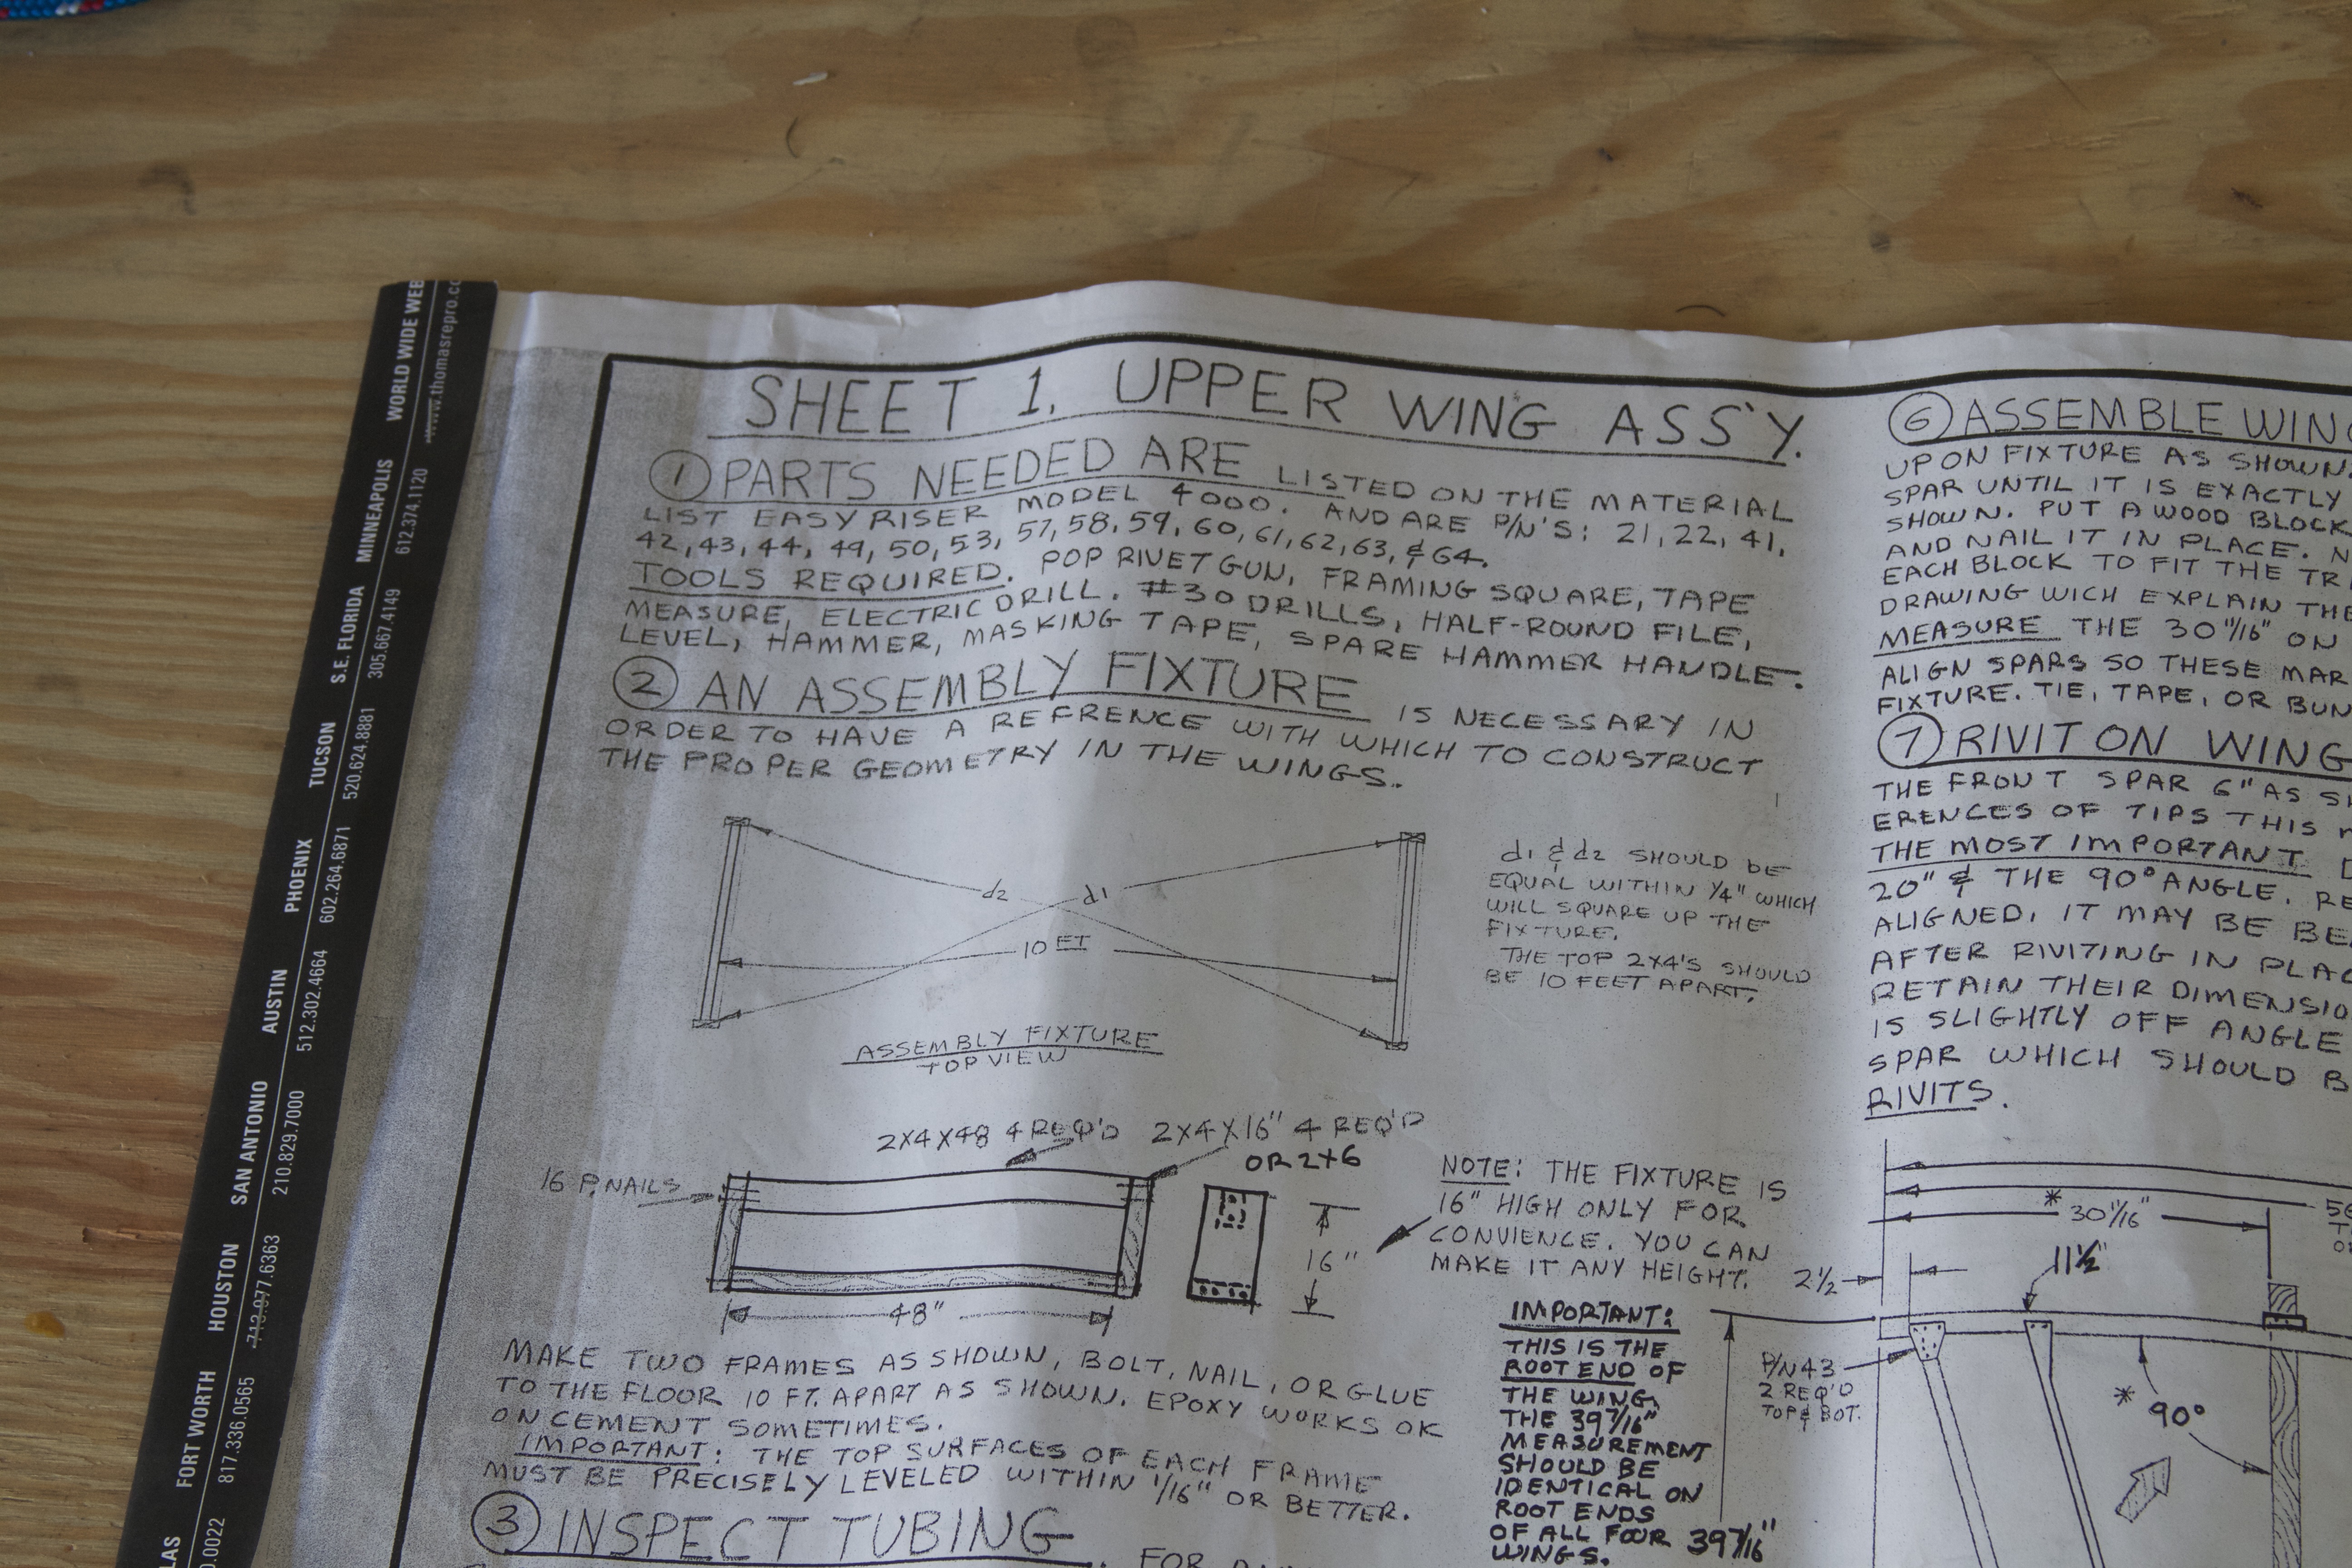 SHEET 1. UPPER WING ASS'Y.
① PARTS NEEDED ARE LISTED ON THE MATERIAL
LIST EASY RISER MODEL 4000. AND ARE P/N'S: 21, 22, 41,
42, 43, 44, 49, 50, 53, 57, 58, 59, 60, 61, 62, 63, & 64.
TOOLS REQUIRED. POP RIVET GUN, FRAMING SQUARE, TAPE
MEASURE, ELECTRIC DRILL. #30 DRILLS, HALF-ROUND FILE,
LEVEL, HAMMER, MASKING TAPE, SPARE HAMMER HANDLE.
② AN ASSEMBLY FIXTURE IS NECESSARY IN
ORDER TO HAVE A REFRENCE WITH WHICH TO CONSTRUCT
THE PROPER GEOMETRY IN THE WINGS.
d2
d1
10 FT
ASSEMBLY FIXTURE
TOP VIEW
d1 & d2 SHOULD BE
EQUAL WITHIN 1/4" WHICH
WILL SQUARE UP THE
FIXTURE.
THE TOP 2X4'S SHOULD
BE 10 FEET APART.
2X4X48 4 REQ'D
2X4X16" 4 REQ'D
OR 2X6
16 P. NAILS
48"
16"
NOTE: THE FIXTURE IS
16" HIGH ONLY FOR
CONVIENCE. YOU CAN
MAKE IT ANY HEIGHT.
MAKE TWO FRAMES AS SHOWN, BOLT, NAIL, OR GLUE
TO THE FLOOR 10 FT. APART AS SHOWN. EPOXY WORKS OK
ON CEMENT SOMETIMES.
IMPORTANT: THE TOP SURFACES OF EACH FRAME
MUST BE PRECISELY LEVELED WITHIN 1/16" OR BETTER.
③ INSPECT TUBING. FOR
IMPORTANT:
THIS IS THE
ROOT END OF
THE WING,
THE 39 7/16"
MEASUREMENT
SHOULD BE
IDENTICAL ON
ROOT ENDS
OF ALL FOUR
WINGS.
39 7/16"
⑥ ASSEMBLE WING
UPON FIXTURE AS SHOWN.
SPAR UNTIL IT IS EXACTLY
SHOWN. PUT A WOOD BLOCK
AND NAIL IT IN PLACE.
EACH BLOCK TO FIT THE
DRAWING WICH EXPLAIN THE
MEASURE THE 30 11/16" ON
ALIGN SPARS SO THESE
FIXTURE. TIE, TAPE, OR
⑦ RIVIT ON WING
THE FRONT SPAR 6" AS
ERENCES OF TIPS THIS
THE MOST IMPORTANT
20" & THE 90° ANGLE.
ALIGNED. IT MAY BE
AFTER RIVITING IN
RETAIN THEIR
IS SLIGHTLY OFF ANGLE
SPAR WHICH SHOULD
RIVITS.
* 30 11/16"
2 1/2
11 1/2"
P/N 43
2 REQ'D
TOP & BOT.
* 90°
WORLD WIDE WEB
www.thomasrepro.co
MINNEAPOLIS
612.374.1120
S.E. FLORIDA
305.667.4149
TUCSON
520.624.8881
PHOENIX
602.264.6871
AUSTIN
512.302.4664
SAN ANTONIO
210.829.7000
HOUSTON
713.977.6363
FORT WORTH
817.336.0565
LAS
0.0022